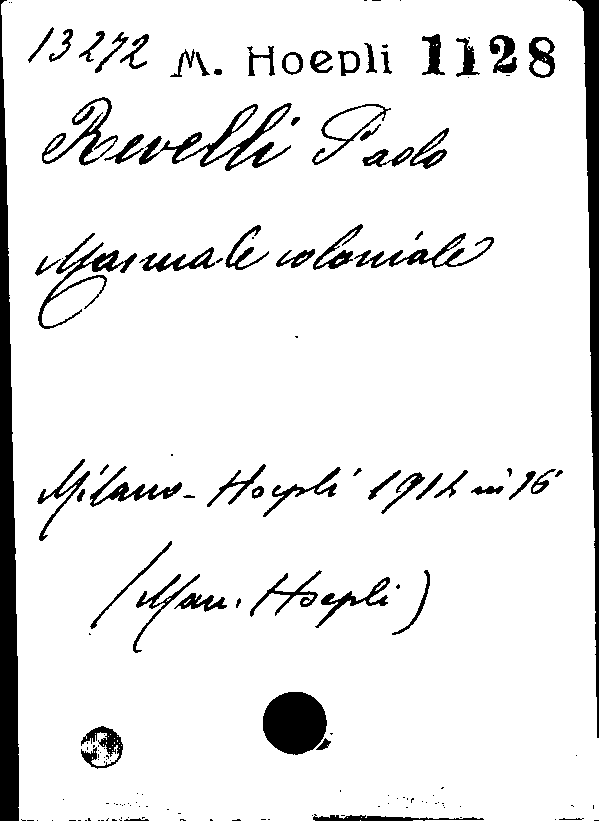 13272 M. Hoepli 1128
Revelli Paolo
Manuale coloniale
Milano - Hoepli 1914 in 16°
(Man. Hoepli)